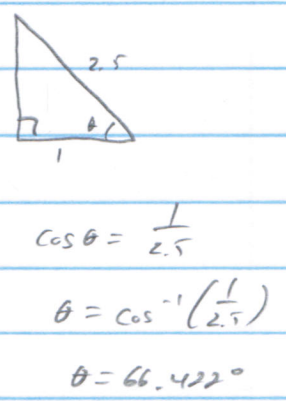 2.5
θ
1
cos θ = 1/2.5
θ = cos⁻¹(1/2.5)
θ = 66.422°